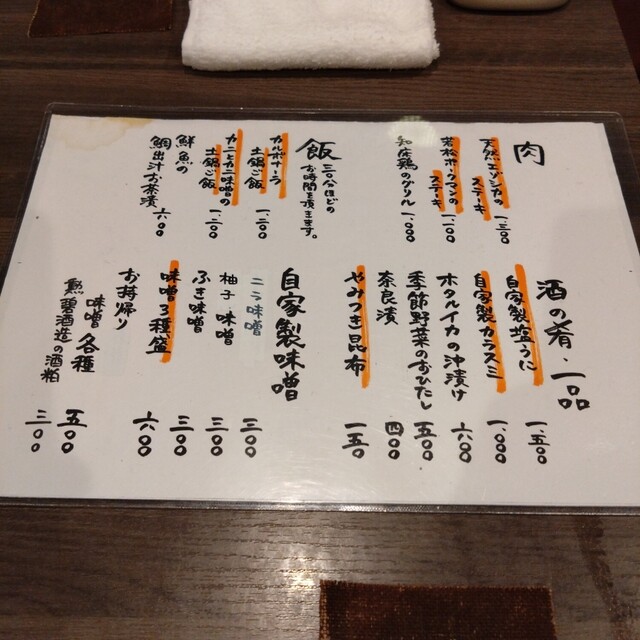 肉
天然エゾシカのステーキ 一、三〇〇
若松ポークマンのステーキ 一、一〇〇
知床鶏のグリル 一、〇〇〇
飯
三〇分ほどのお時間を頂きます。
カルボナーラ土鍋ご飯 一、二〇〇
カニとカニ味噌の土鍋ご飯 一、二〇〇
鮮魚の鯛出汁お茶漬 六〇〇
酒の肴・一品
自家製塩うに 一、五〇〇
自家製カラスミ 一、〇〇〇
ホタルイカの沖漬け 六〇〇
季節野菜のおひたし 五〇〇
奈良漬 四〇〇
やみつき昆布 一五〇
自家製味噌
ニラ味噌 三〇〇
柚子味噌 三〇〇
ふき味噌 三〇〇
味噌3種盛 六〇〇
お持帰り
味噌各種 五〇〇
碧酒造の酒粕 三〇〇